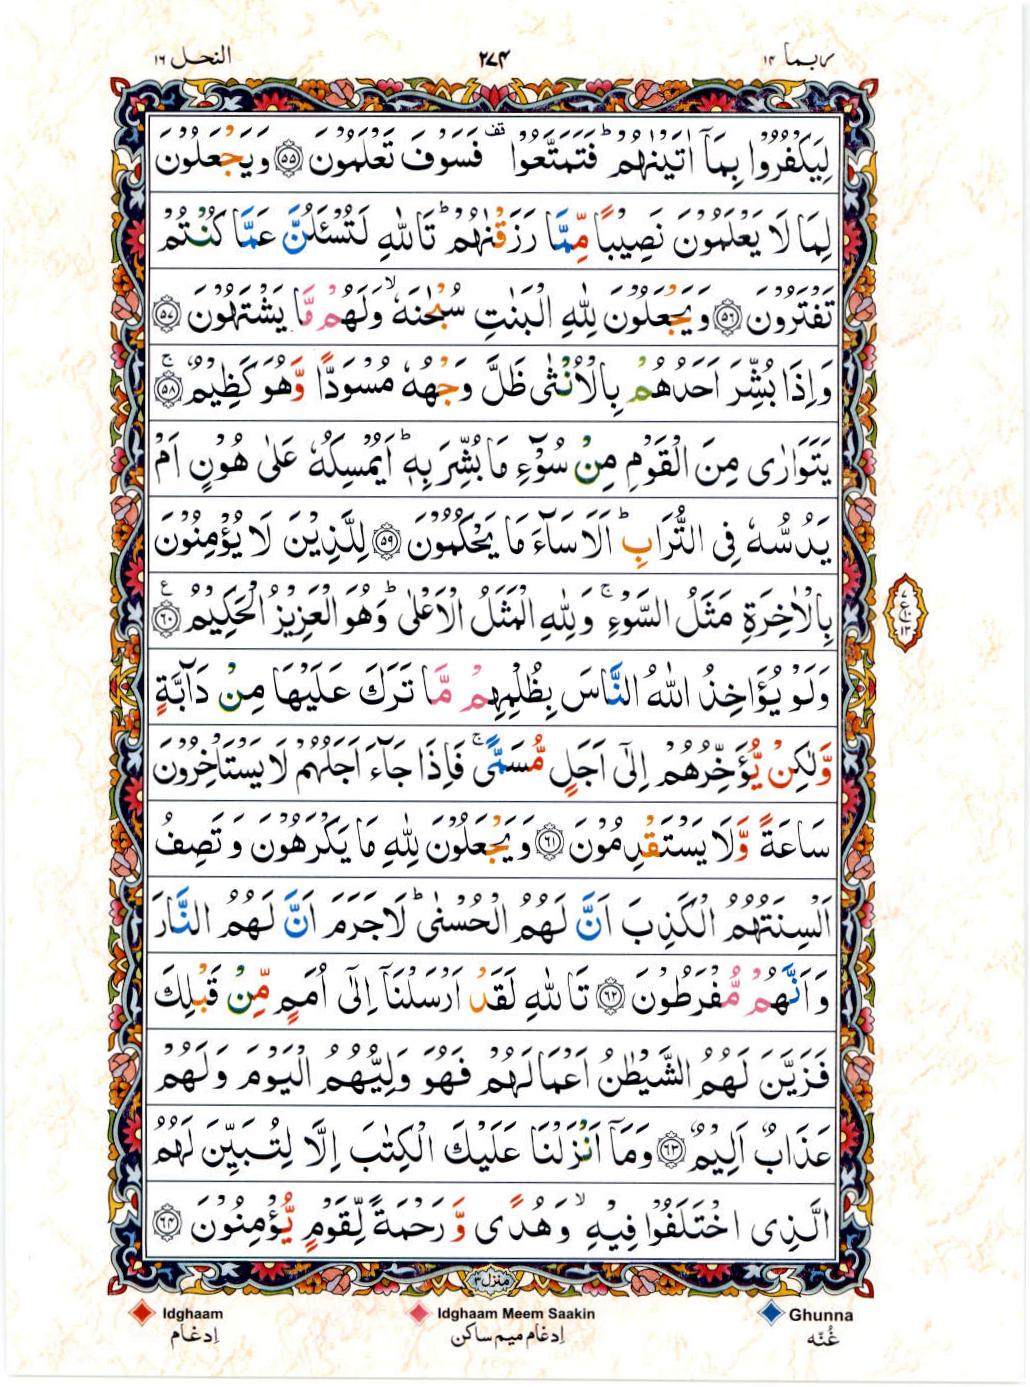 النحل ١٦
٢٧۴
ربما ١۴
لِيَكْفُرُوْا بِمَاۤ اٰتَيْنٰهُمْ ؕ فَتَمَتَّعُوْا ۫ فَسَوْفَ تَعْلَمُوْنَ ۝٥٥ وَ يَجْعَلُوْنَ
لِمَا لَا يَعْلَمُوْنَ نَصِيْبًا مِّمَّا رَزَقْنٰهُمْ ؕ تَاللّٰهِ لَتُسْـَٔلُنَّ عَمَّا كُنْتُمْ
تَفْتَرُوْنَ ۝٥٦ وَ يَجْعَلُوْنَ لِلّٰهِ الْبَنٰتِ سُبْحٰنَهٗ ۙ وَلَهُمْ مَّا يَشْتَهُوْنَ ۝٥٧
وَ اِذَا بُشِّرَ اَحَدُهُمْ بِالْاُنْثٰى ظَلَّ وَجْهُهٗ مُسْوَدًّا وَّهُوَ كَظِيْمٌ ۝٥٨ۚ
يَتَوَارٰى مِنَ الْقَوْمِ مِنْ سُوْٓءِ مَا بُشِّرَ بِهٖ ؕ اَيُمْسِكُهٗ عَلٰى هُوْنٍ اَمْ
يَدُسُّهٗ فِى التُّرَابِ ؕ اَلَا سَآءَ مَا يَحْكُمُوْنَ ۝٥٩ لِلَّذِيْنَ لَا يُؤْمِنُوْنَ
بِالْاٰخِرَةِ مَثَلُ السَّوْءِ ۚ وَ لِلّٰهِ الْمَثَلُ الْاَعْلٰى ؕ وَهُوَ الْعَزِيْزُ الْحَكِيْمُ ۝٦٠ ع
ع
وَلَوْ يُؤَاخِذُ اللّٰهُ النَّاسَ بِظُلْمِهِمْ مَّا تَرَكَ عَلَيْهَا مِنْ دَآبَّةٍ
وَّلٰكِنْ يُّؤَخِّرُهُمْ اِلٰۤى اَجَلٍ مُّسَمًّى ۚ فَاِذَا جَآءَ اَجَلُهُمْ لَا يَسْتَاْخِرُوْنَ
سَاعَةً وَّلَا يَسْتَقْدِمُوْنَ ۝٦١ وَ يَجْعَلُوْنَ لِلّٰهِ مَا يَكْرَهُوْنَ وَ تَصِفُ
اَلْسِنَتُهُمُ الْكَذِبَ اَنَّ لَهُمُ الْحُسْنٰى ؕ لَا جَرَمَ اَنَّ لَهُمُ النَّارَ
وَ اَنَّهُمْ مُّفْرَطُوْنَ ۝٦٢ تَاللّٰهِ لَقَدْ اَرْسَلْنَاۤ اِلٰۤى اُمَمٍ مِّنْ قَبْلِكَ
فَزَيَّنَ لَهُمُ الشَّيْطٰنُ اَعْمَالَهُمْ فَهُوَ وَلِيُّهُمُ الْيَوْمَ وَلَهُمْ
عَذَابٌ اَلِيْمٌ ۝٦٣ وَمَاۤ اَنْزَلْنَا عَلَيْكَ الْكِتٰبَ اِلَّا لِتُبَيِّنَ لَهُمُ
الَّذِى اخْتَلَفُوْا فِيْهِ ۙ وَهُدًى وَّرَحْمَةً لِّقَوْمٍ يُّؤْمِنُوْنَ ۝٦۴
منزل ٣
Idghaam
اِدغام
Idghaam Meem Saakin
اِدغام میم ساکن
Ghunna
غُنّه